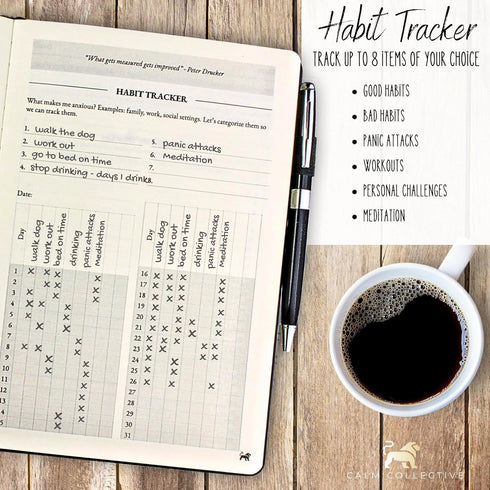 "What gets measured gets improved" - Peter Drucker
HABIT TRACKER
What makes me anxious? Examples: family, work, social settings. Let's categorize them so
we can track them.
1. walk the dog
2. work out
3. go to bed on time
4. stop drinking - days I drink
5. panic attacks
6. Meditation
7.
8.
Date:
Day walk dog work out bed on time drinking panic attacks Meditation
1
2
3
4
5
6
7
8
9
10
11
12
13
14
15
Day walk dog work out bed on time drinking panic attacks Meditation
16
17
18
19
20
21
22
23
24
25
26
27
28
29
30
31
Habit Tracker
TRACK UP TO 8 ITEMS OF YOUR CHOICE
• GOOD HABITS
• BAD HABITS
• PANIC ATTACKS
• WORKOUTS
• PERSONAL CHALLENGES
• MEDITATION
CALM COLLECTIVE